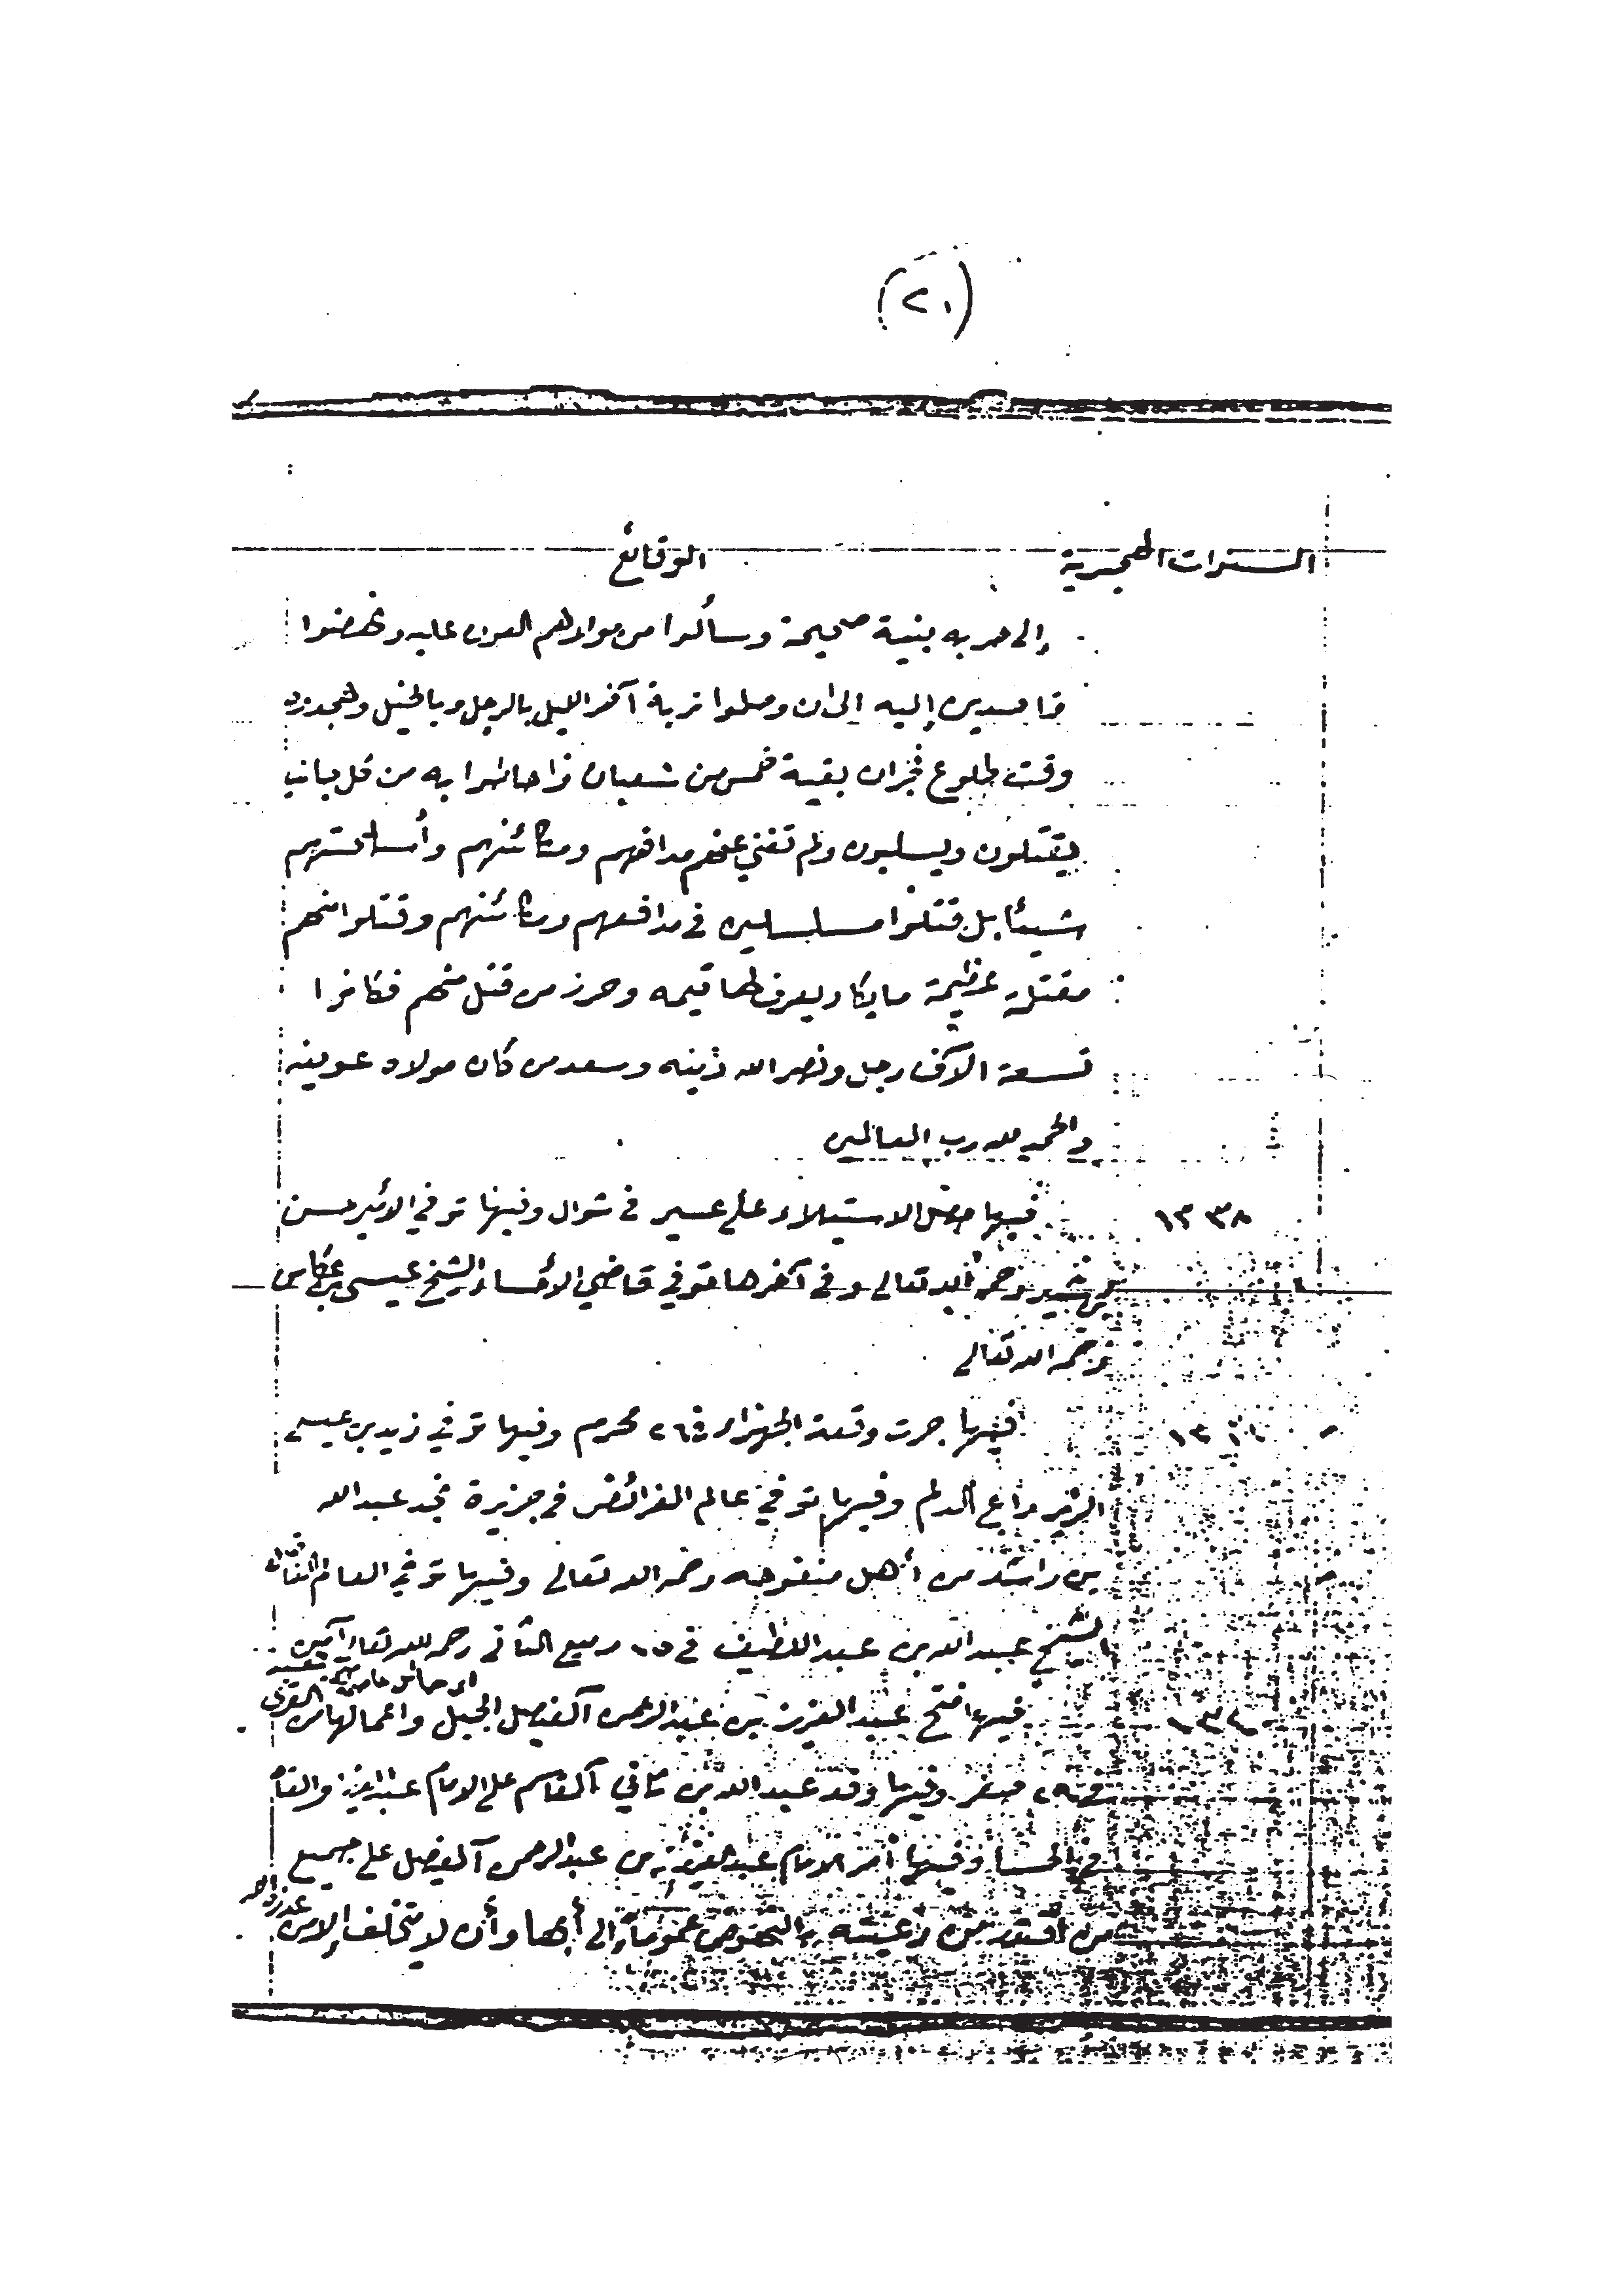 (٢٠)
السنوات الهجرية الوقائع
إلى حربه بنية صحيحة وسألوا من مولاهم العون عليه ونهضوا
قاصدين إليه الى ان وصلوا تربة آخر الليل بالرجل وبالخيل
وقت طلوع فجران بقية خمس من شعبان فاحاطوا به من كل جانب
يقتلون ويسلبون ولم تغني عنهم مدافعهم ومكائنهم وأسلحتهم
شيئا بل قتلوا مسلسلين في مدافعهم ومكائنهم وقتلوا منهم
مقتلة عظيمة ما يكاد يعرف لها قيمه وحرز من قتل منهم فكانوا
تسعة الآف رجل ونصر الله دينه وسعد من كان مولاه عوينه
والحمد لله رب العالمين
١٣٣٨ فيها حصل الاستيلاء على عسير في شوال وفيها توفي الأمير حسن
رحمه الله تعالى وفي آخرها توفي قاضي الأحساء الشيخ عيسى بن عكاس
رحمه الله تعالى
فيها جرت وقعة الجهراء في ٢٦ محرم وفيها توفي زيد بن عيسى
الدلم وفيها توفي عالم الفرائض في جزيرة نجد عبد الله
بن راشد من أهل منفوحه رحمه الله تعالى وفيها توفي العالم
الشيخ عبد الله بن عبد اللطيف في ربيع الثاني رحمه الله تعالى آمين
اي حائل عاصمة
١٣٤٠ فيها افتتح عبد العزيز بن عبد الرحمن آلفيصل الجبل واعمالها من
٢٩ صفر وفيها وفد عبد الله بن ثاني آلقاسم على الامام عبد العزيز
في الحسا وفيها أمر الامام عبد العزيز بن عبد الرحمن آلفيصل على جميع
من رعيته بالنهوض عموماً إلى أبها وأن لا يتخلف إلا من